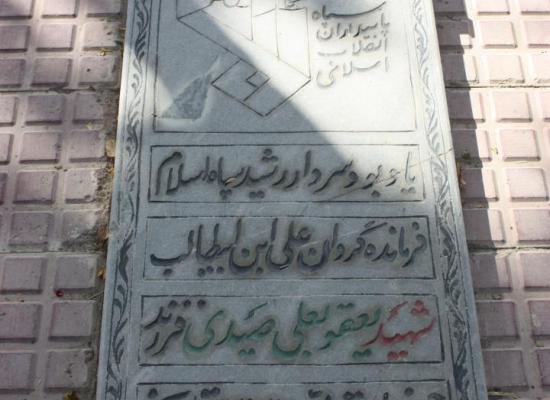 سپاه
پاسداران
انقلاب
اسلامی
یادبود سردار رشید سپاه اسلام
فرمانده گردان علی ابن ابیطالب
شهید یعقوبعلی صیدی فرزند